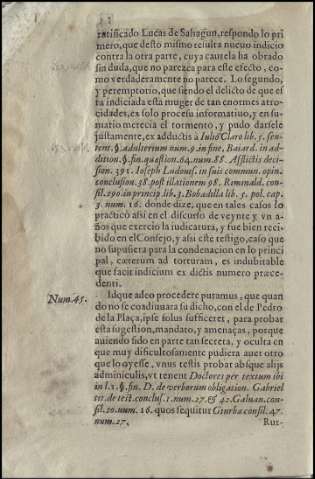 ratificado Lucas de Sahagun, respondo lo pri
mero, que desto mismo resulta nueuo indicio
contra la otra parte, cuya cautela ha obrado
sin duda, que no parezca para este efecto, co-
mo verdaderamente no parece. Lo segundo,
y peremptorio, que siendo el delicto de que es
ta indiciada esta muger de tan enormes atro-
cidades, es solo processo informatiuo, y en su-
mario merecia el tormento, y pudo darsele
justamente, ex adductis à Iulio Claro lib. 5. sen-
tent. §. adulterium num. 9. in fine, Baiard. in ad-
dition. §. fin. quæstion. 64. num. 88. Afflictis deci-
sion. 391. Ioseph Ludouis. in suis commun. opin.
conclusion. 38. post illationem 98. Riminald. con-
sil. 290. in princip. lib. 3. Bobadilla lib. 5. pol. cap.
3. num. 16. donde dize, que en tales casos lo
practicò assi en el discurso de veynte y vn a-
ños que exercio la iudicatura, y fue bien reci-
bido en el Consejo, y assi este testigo, caso que
no se supusiera para la condenacion en lo princi
pal, cæterum ad torturam, es indubitable
que facit indicium ex dictis numero præce-
denti.
Num. 45. Idque adeo procedere putamus, que quan
do no se coadiuuara su dicho, con el de Pedro
de la Plaça, ipse solus sufficeret, para probar
esta sugestion, mandato, y amenaças, porque
auiendo sido en parte tan secreta, y oculta en
que muy dificultosamente pudiera auer otro
que lo oyesse, vnus testis probat absque alijs
adminiculis, vt tenent Doctores per textum ibi
in l. 1. §. fin. D. de verborum obligation. Gabriel
tit. de test. conclus. 1. num. 27. & 42. Galuan. con-
sil. 20. num. 16. quos sequitur Giurba consil. 47.
num. 27.
Rur-